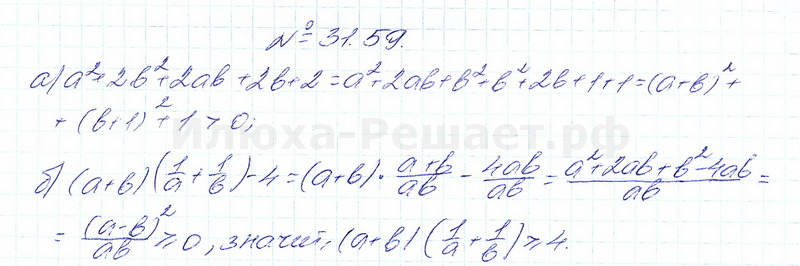 № 31.59.
а) a²+2b²+2ab+2b+2=a²+2ab+b²+b²+2b+1+1=(a+b)²+
+(b+1)²+1>0;
Илюха-Решает.рф
б) (a+b)(1/a+1/b)-4=(a+b)·(a+b)/ab-4ab/ab=(a²+2ab+b²-4ab)/ab=
=(a-b)²/ab≥0, значит, (a+b)(1/a+1/b)≥4.